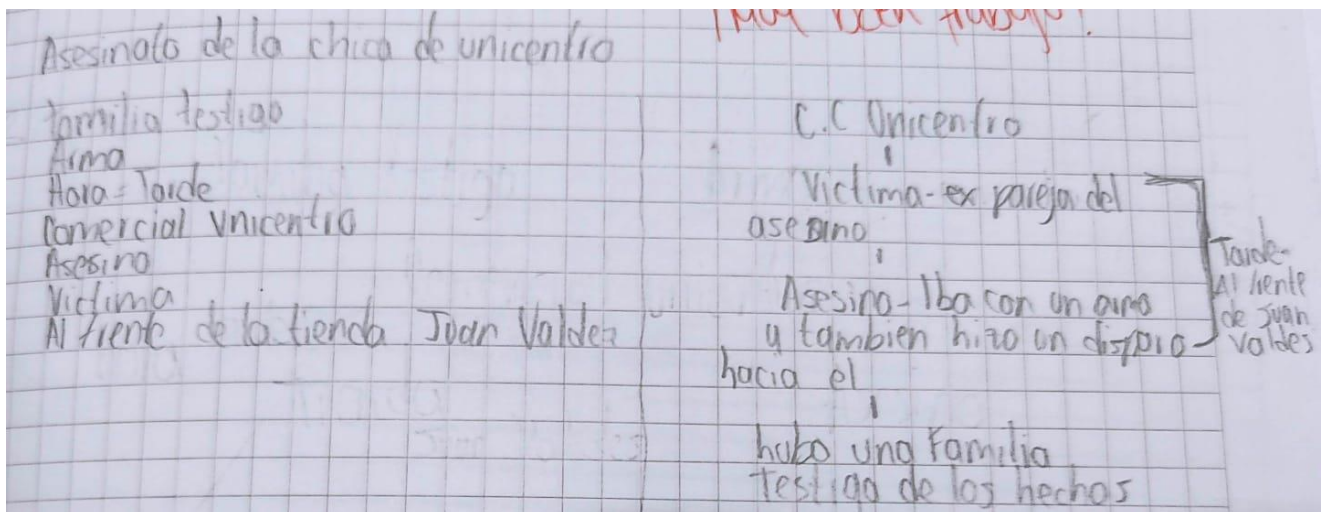 ¡Muy buen trabajo!
Asesinato de la chica de unicentro
familia testigo
Arma
Hora = Tarde
Comercial Unicentro
Asesino
Victima
Al frente de la tienda Joan Valdez
C.C Unicentro
Victima - ex pareja del
asesino
Asesino - Iba con un arma
y tambien hizo un disparo
hacia el
hubo una Familia
Testigo de los hechos
Tarde -
Al frente
de Juan
Valdes